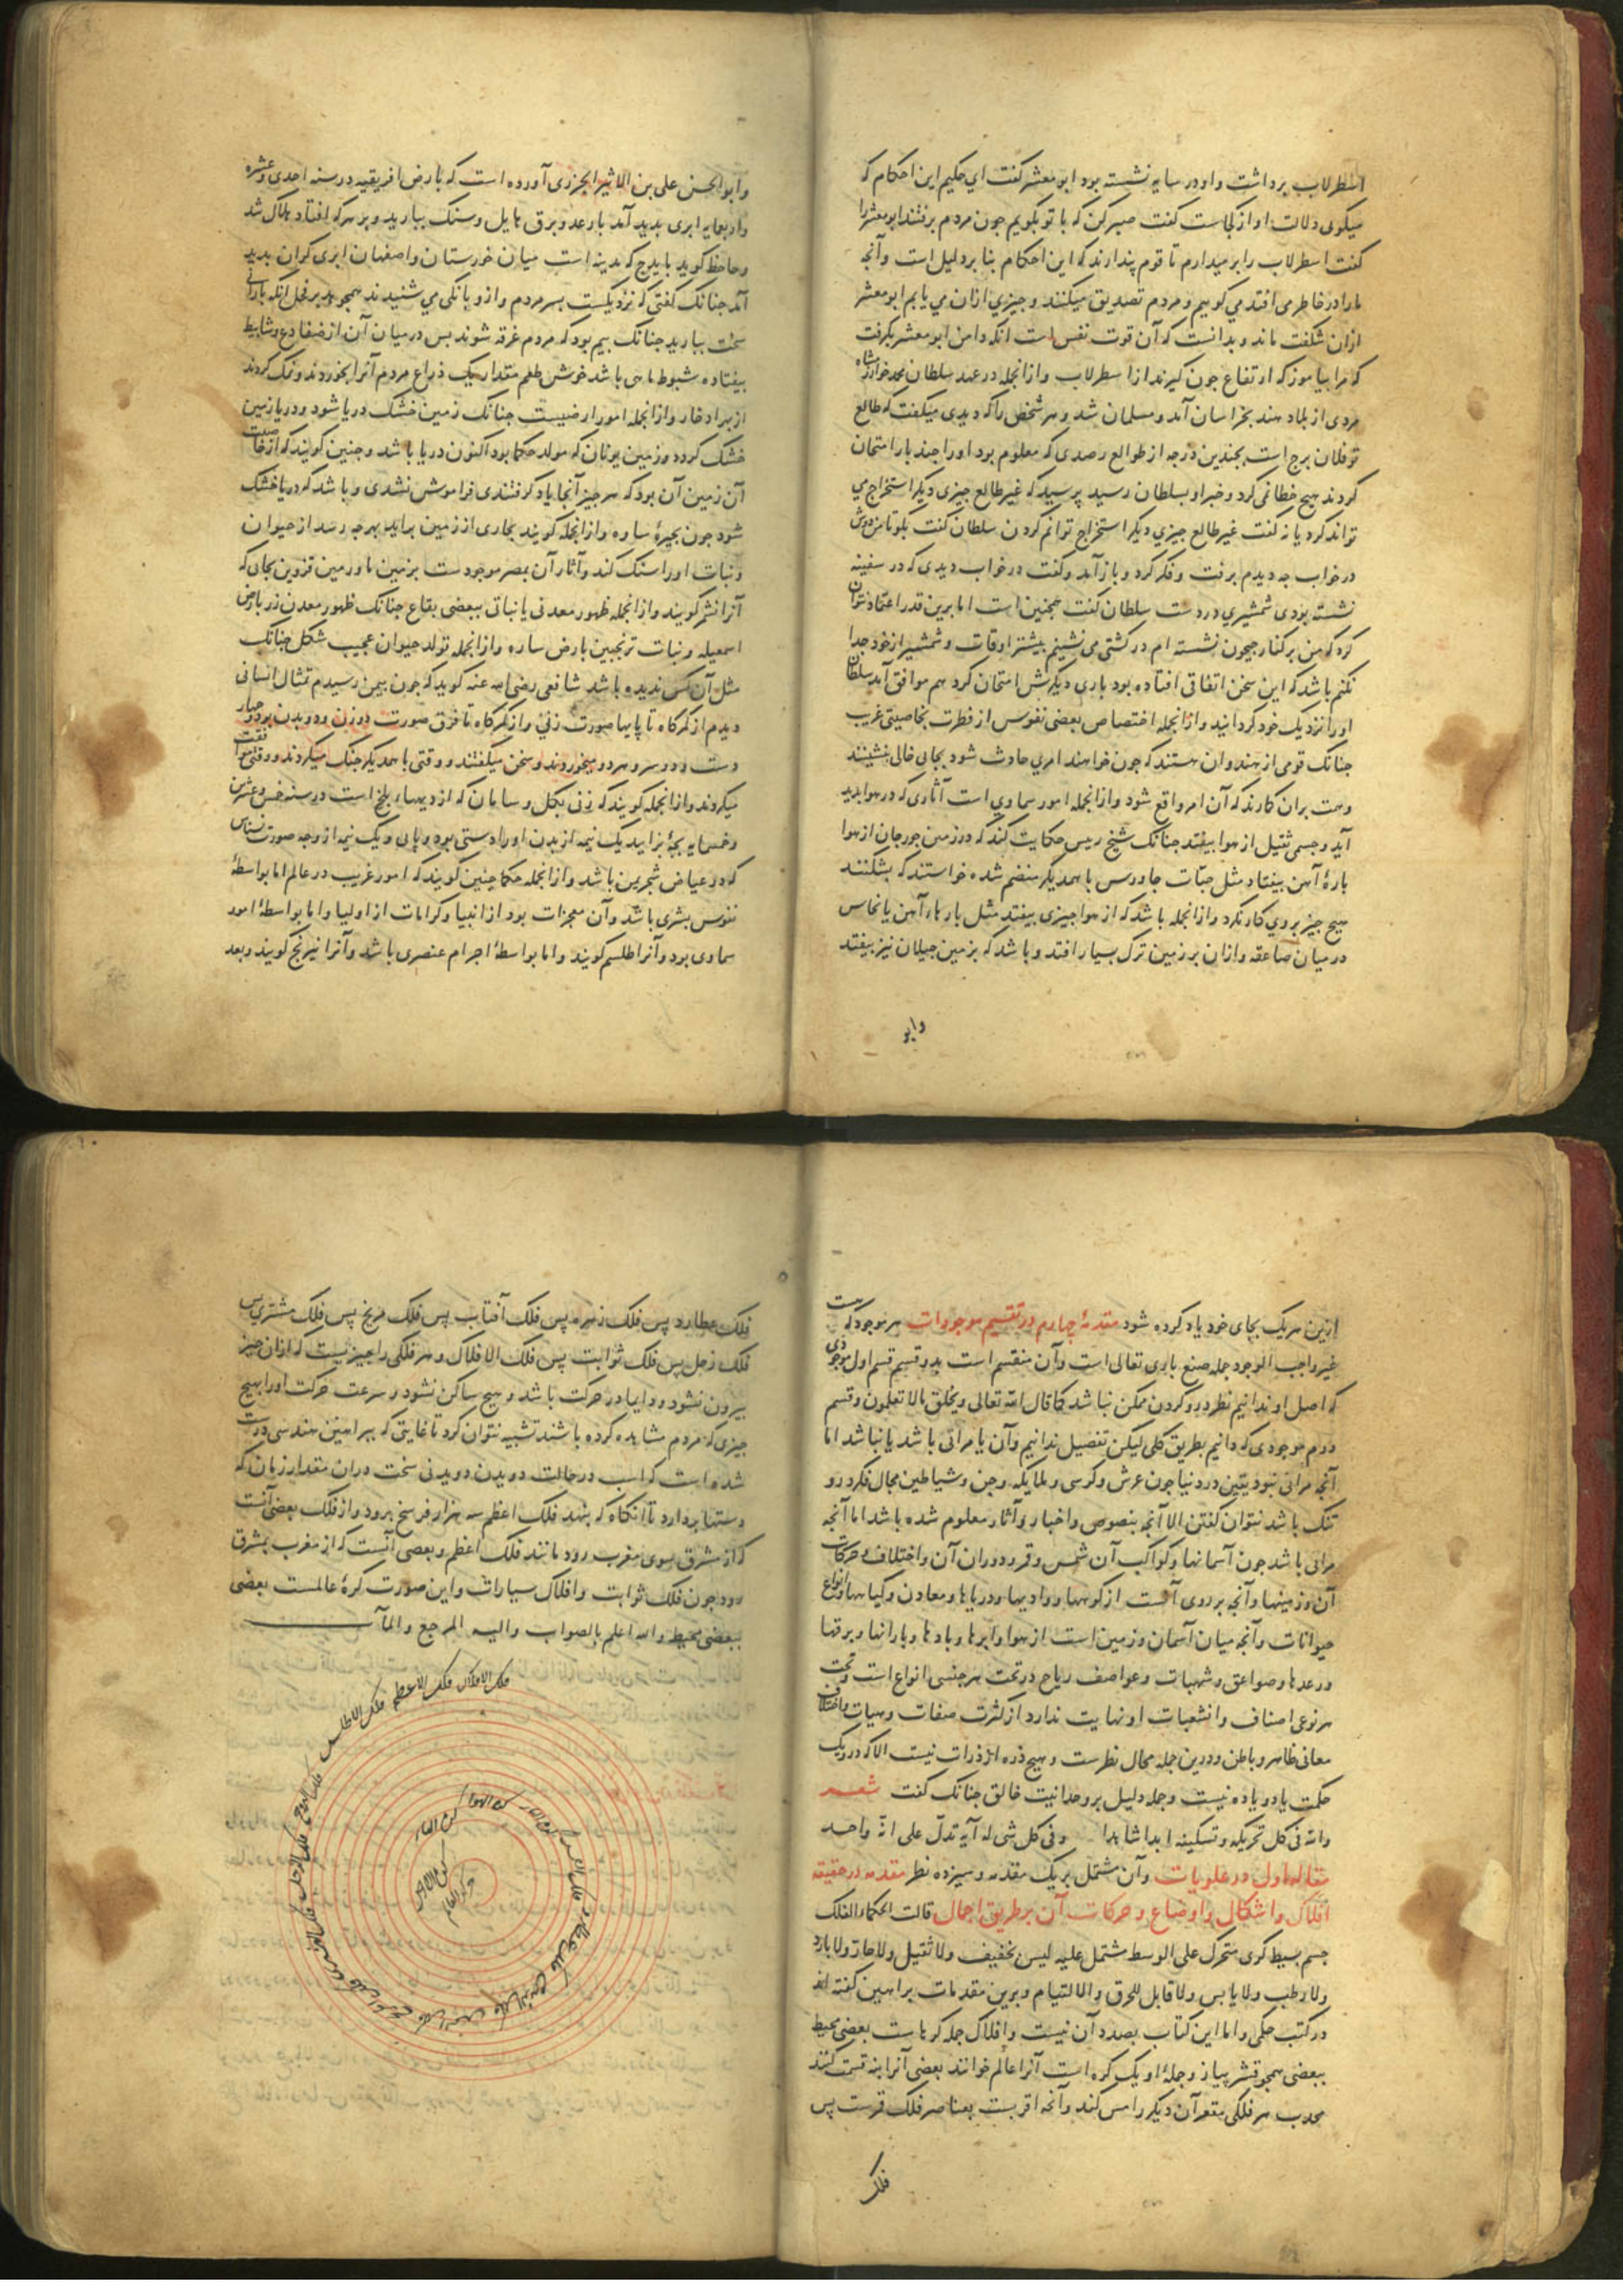 اسطرلاب برداشت و او در سایه نشسته بود ابو معشر کفت ای حکیم این احکام که
میکوی دلالت او از کجاست کفت صبر کن که با تو بکویم جون مردم برفتند ابو معشر را
کفت اسطرلاب را بر میدارم تا قوم پندارند که این احکام بنا بر دلیل است و آنجه
ما را در خاطر می افتد می کوییم و مردم تصدیق میکنند و جیزی ازان می یابم ابو معشر
ازان شکفت ماند و بدانست که آن قوت نفس است انکه دامن ابو معشر بکرفت
که مرا بیاموز که ارتفاع جون کیرند از اسطرلاب و ازانجمله در عهد سلطان محمد خوارزمشاه
مردی از بلاد هند بخراسان آمد و مسلمان شد و هر شخص را که دیدی میکفت که طالع
تو فلان برج است بجندین درجه از طوالع رصدی که معلوم بود او را جند بار امتحان
کردند هیج خطا نمی کرد و خبر او بسلطان رسید پرسید که غیر طالع جیزی دیکر استخراج می
تواند کرد یا نه کفت غیر طالع جیزی دیکر استخراج توانم کردن سلطان کفت بکو تا من دوش
در خواب جه دیدم برفت و فکر کرد و باز آمد و کفت در خواب دیدی که در سفینه
نشسته بودی شمشیری در دست سلطان کفت همجنین است اما برین قدر اعتماد نتوان
کرد که من بر کنار جیحون نشسته ام در کشتی می نشینم بیشتر اوقات و شمشیر از خود جدا
نکنم باشد که این سخن اتفاقی افتاده بود باری دیکرش امتحان کرد هم موافق آمد سلطان
او را نزدیک خود کردانید و ازانجمله اختصاص بعضی نفوس از فطرت بخاصیتی غریب
جنانک قومی از هندوان هستند که جون خواهند امری حادث شود بجای خالی بنشینند
و همت بران کمارند که آن امر واقع شود و ازانجمله امور سماوی است آثاری که در هوا پدید
آید و جسمی ثقیل از هوا بیفتد جنانک شیخ رییس حکایت کند که در زمین جورجان از هوا
پارهٔ آهن بیفتاد مثل حبّات جاورس با همدیکر منضم شده خواستند که بشکنند
هیج جیز بروی کار نکرد و ازانجمله باشد که از هوا جیزی بیفتد مثل پارهاء آهن یا نحاس
در میان صاعقه و ازان بر زمین ترک بسیار افتد و باشد که بزمین جیلان نیز بیفتد
وابو
و ابو الحسن علی بن الاثیر الجزری آورده است که بارض افریقیه در سنه احدی عشره
و اربعمایه ابری بدید آمد با رعد و برق هایل و سنک ببارید و بر هر که افتاد هلاک شد
و جاحظ کوید بایدج که مدینه است میان خوزستان و اصفهان ابری کران بدید
آمد جنانک کفتی که نزدیکست بسر مردم و ازو بانکی می شنیدند همجو هدیر فحل انکه بارانی
سخت ببارید جنانک بیم بود که مردم غرقه شوند بس در میان آن از ضفادع و شبابیط
بیفتاده شبوط ماهی باشد خوش طعم مقدار یک ذراع مردم آنرا بخوردند و نمک کردند
از بهر ادخار و ازانجمله امور ارضیست جنانک زمین خشک دریا شود و دریا زمین
خشک کردد و زمین یونان که مولد حکما بود اکنون دریا باشد و جنین کویند که از خاصیت
آن زمین آن بود که هر جیز آنجا یاد کرفتندی فراموش نشدی و باشد که دریا خشک
شود جون بحیرهٔ ساوه و ازانجمله کویند بخاری از زمین براید بهر جه رسد از حیوان
و نبات او را سنک کند و آثار آن بمصر موجودست بزمین ما و زمین قزوین بجای که
آنرا نشر کویند و ازانجمله ظهور معدنی یا نباتی ببعضی بقاع جنانک ظهور معدن زر بارض
اسمعیله و نبات ترنجبین بارض ساوه و ازانجمله تولد حیوان عجیب شکل جنانک
مثل آن کس ندیده باشد شافعی رضی الله عنه کوید که جون بیمن رسیدم تمثال انسانی
دیدم از کمرکاه تا پایها صورت زنی و از کمرکاه تا فرق صورت دو زن و دو بدن بود و چهار
دست و دو سر و هر دو میخوردند و سخن میکفتند و وقتی با همدیکر جنک میکردند و وقتی موافقت
میکردند و ازانجمله کویند که زنی بکل و سامان که از دیهاء بلخ است در سنه خمس و عشرین
و خمسمایه بچهٔ بزایید یک نیمه از بدن او را دستی بود و پای و یک نیمه از وجه صورت نسناس
که در غیاض شجر یمن باشد و ازانجمله حکما جنین کویند که امور غریب در عالم اما بواسطهٔ
نفوس بشری باشد و آن معجزات بود از انبیا و کرامات از اولیا و اما بواسطهٔ امور
سماوی بود و آنرا طلسم کویند و اما بواسطهٔ اجرام عنصری باشد و آنرا نیرنج کویند و بعد
ازین هر یک بجای خود یاد کرده شود مقدمهٔ چهارم در تقسیم موجودات هر موجود که هست
غیر واجب الوجود جمله صنع باری تعالی است و آن منقسم است بدو قسم قسم اول موجودی
که اصل او ندانیم نظر درو کردن ممکن نباشد کما قال الله تعالی و یخلق ما لا تعلمون و قسم
دوم موجودی که دانیم بطریق کلی لیکن تفصیل ندانیم و آن یا مرائی باشد یا نباشد اما
آنجه مرائی نبود یقین در دنیا جون عرش و کرسی و ملایکه و جن و شیاطین مجال فکر درو
تنک باشد نتوان کفتن الا آنجه بنصوص و اخبار و آثار معلوم شده باشد اما آنجه
مرائی باشد جون آسمانها و کواکب آن شمس و قمر و دوران آن و اختلاف و حرکات
آن و زمینها و آنجه بر روی آنست از کوهها و وادیها و دریاها و معادن و کیاهها و انواع
حیوانات و آنجه میان آسمان و زمین است از هوا و ابرها و بادها و بارانها و برقها
و رعدها و صواعق و شهبات و عواصف ریاح در تحت هر جنسی انواع است و تحت
هر نوعی اصناف و انشعابات او نهایت ندارد از کثرت صفات و هیات و اختلاف
معانی ظاهر و باطن و درین جمله مجال نظر ست و هیج ذره از ذرات نیست الا که درو یک
حکمت یا دو یا ده نیست و جمله دلیل بر وحدانیت خالق جنانک کفت شعـــر
و لله فی کل تحریکه و تسکینه ابدا شاهدا و فی کل شی له آیه تدلّ علی انّه واحد
مقاله اول در علویات و آن مشتمل بر یک مقدمه و سیزده نظر مقدمه در حقیقه
افلاک و اشکال و اوضاع و حرکات آن بر طریق اجمال قالت الحکماء الفلک
جسم بسیط کری متحرک علی الوسط مشتمل علیه لیس بخفیف و لا ثقیل و لا حارّ و لا بارد
و لا رطب و لا یابس و لا قابل للخرق و الالتیام و برین مقدمات براهین کفته اند
در کتب حکمی و اما این کتاب بصدد آن نیست و افلاک جمله کرهاست بعضی محیط
ببعضی همجو قشر پیاز و جملهٔ او یک کره است آنرا عالم خوانند بعضی آنرا بنه قسمت کنند
محدب هر فلکی مقعر آن دیکر را مس کند و آنجه اقربست بعناصر فلک قمرست پس
فلک
فلک عطارد پس فلک زهره پس فلک آفتاب پس فلک مریخ پس فلک مشتری پس
فلک زحل پس فلک ثوابت پس فلک الافلاک و هر فلکی را جیزیست که ازان جیز
بیرون نشود و دایما در حرکت باشد و هیج ساکن نشود و سرعت حرکت او را بهیج
جیزی که مردم مشاهده کرده باشند تشبیه نتوان کرد تا غایتی که ببراهین هندسی درست
شده است که اسب در حالت دویدن دویدنی سخت دران مقدار زمان که
دستها بردارد تا آنکاه که بنهد فلک اعظم سه هزار فرسخ برود و از فلک بعضی آنست
که از مشرق بسوی مغرب رود مانند فلک اعظم و بعضی آنست که از مغرب بمشرق
رود جون فلک ثوابت و افلاک سیارات و این صورت کرهٔ عالمست بعضی
ببعضی محیط و الله اعلم بالصواب و الیه المرجع و المآب
فلک الافلاک فلک الاعظم فلک الاطلس
فلک البروج
فلک الزحل
فلک المشتری
فلک المریخ
فلک الشمس
فلک الزهره
فلک عطارد
فلک القمر
کرة النار
کرة الهوا
کرة الماء
کرة الارض
مرکز العالم